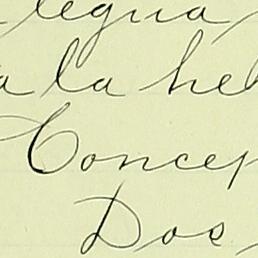 legua
a la he
Concep
Dos